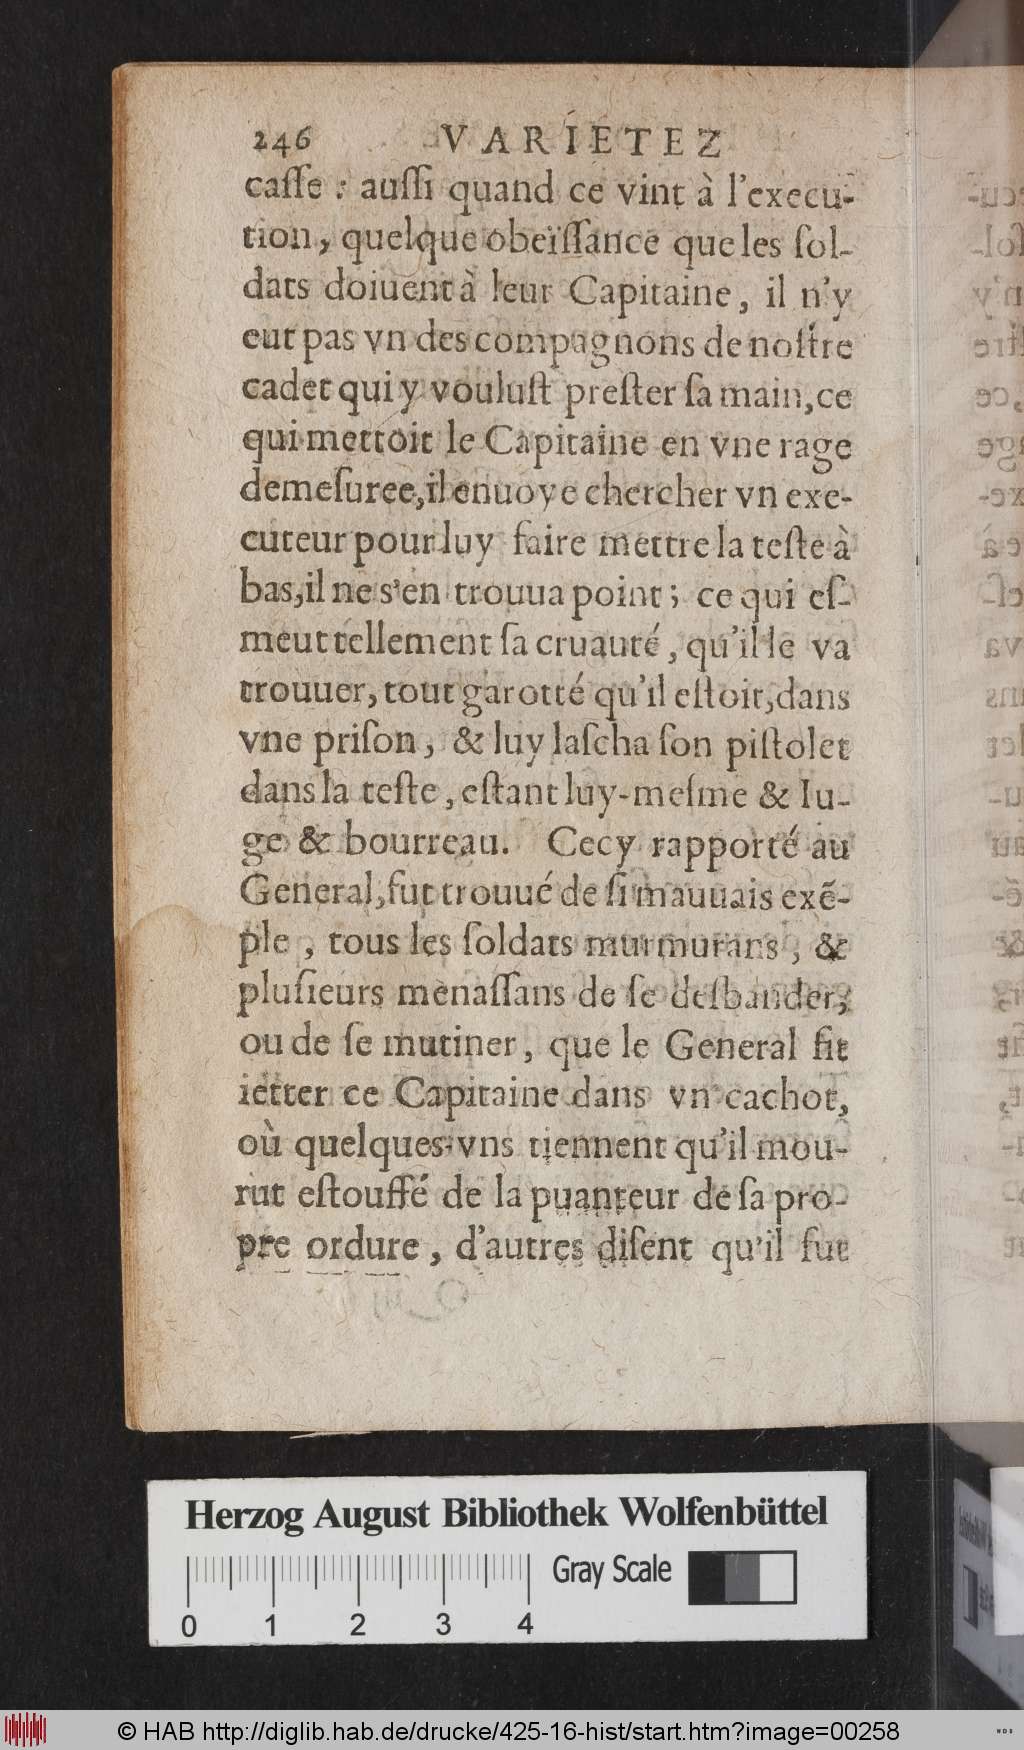 246 VARIETEZ
caſſe : auſſi quand ce vint à l'execu-
tion, quelque obeïſſance que les ſol-
dats doiuent à leur Capitaine, il n'y
eut pas vn des compagnons de noſtre
cadet qui y vouluſt preſter ſa main, ce
qui mettoit le Capitaine en vne rage
demeſuree, il enuoye chercher vn exe-
cuteur pour luy faire mettre la teſte à
bas, il ne s'en trouua point ; ce qui eſ-
meut tellement ſa cruauté, qu'il le va
trouuer, tout garotté qu'il eſtoit, dans
vne priſon, & luy laſcha ſon piſtolet
dans la teſte, eſtant luy-meſme & Iu-
ge & bourreau. Cecy rapporté au
General, fut trouué de ſi mauuais exẽ-
ple, tous les ſoldats murmurans, &
pluſieurs menaſſans de ſe deſbander,
ou de ſe mutiner, que le General fit
ietter ce Capitaine dans vn cachot,
où quelques-vns tiennent qu'il mou-
rut eſtouffé de la puanteur de ſa pro-
pre ordure, d'autres diſent qu'il fut
Herzog August Bibliothek Wolfenbüttel
Gray Scale
0 1 2 3 4
© HAB http://diglib.hab.de/drucke/425-16-hist/start.htm?image=00258